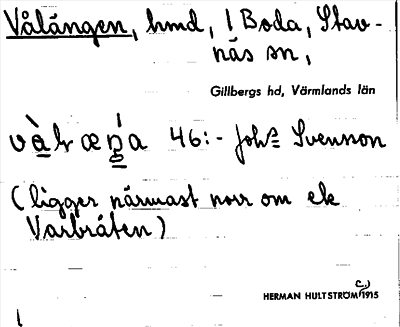 Vålängen, hmd, i Boda, Stav-
näs sn,
Gillbergs hd, Värmlands län
46:- Johs Svensson
(ligger närmast norr om ek
Varbråten)
HERMAN HULTSTRÖM (c.) 1915